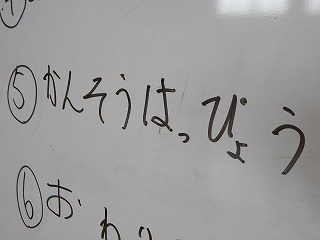 ⑤かんそうはっぴょう
⑥お